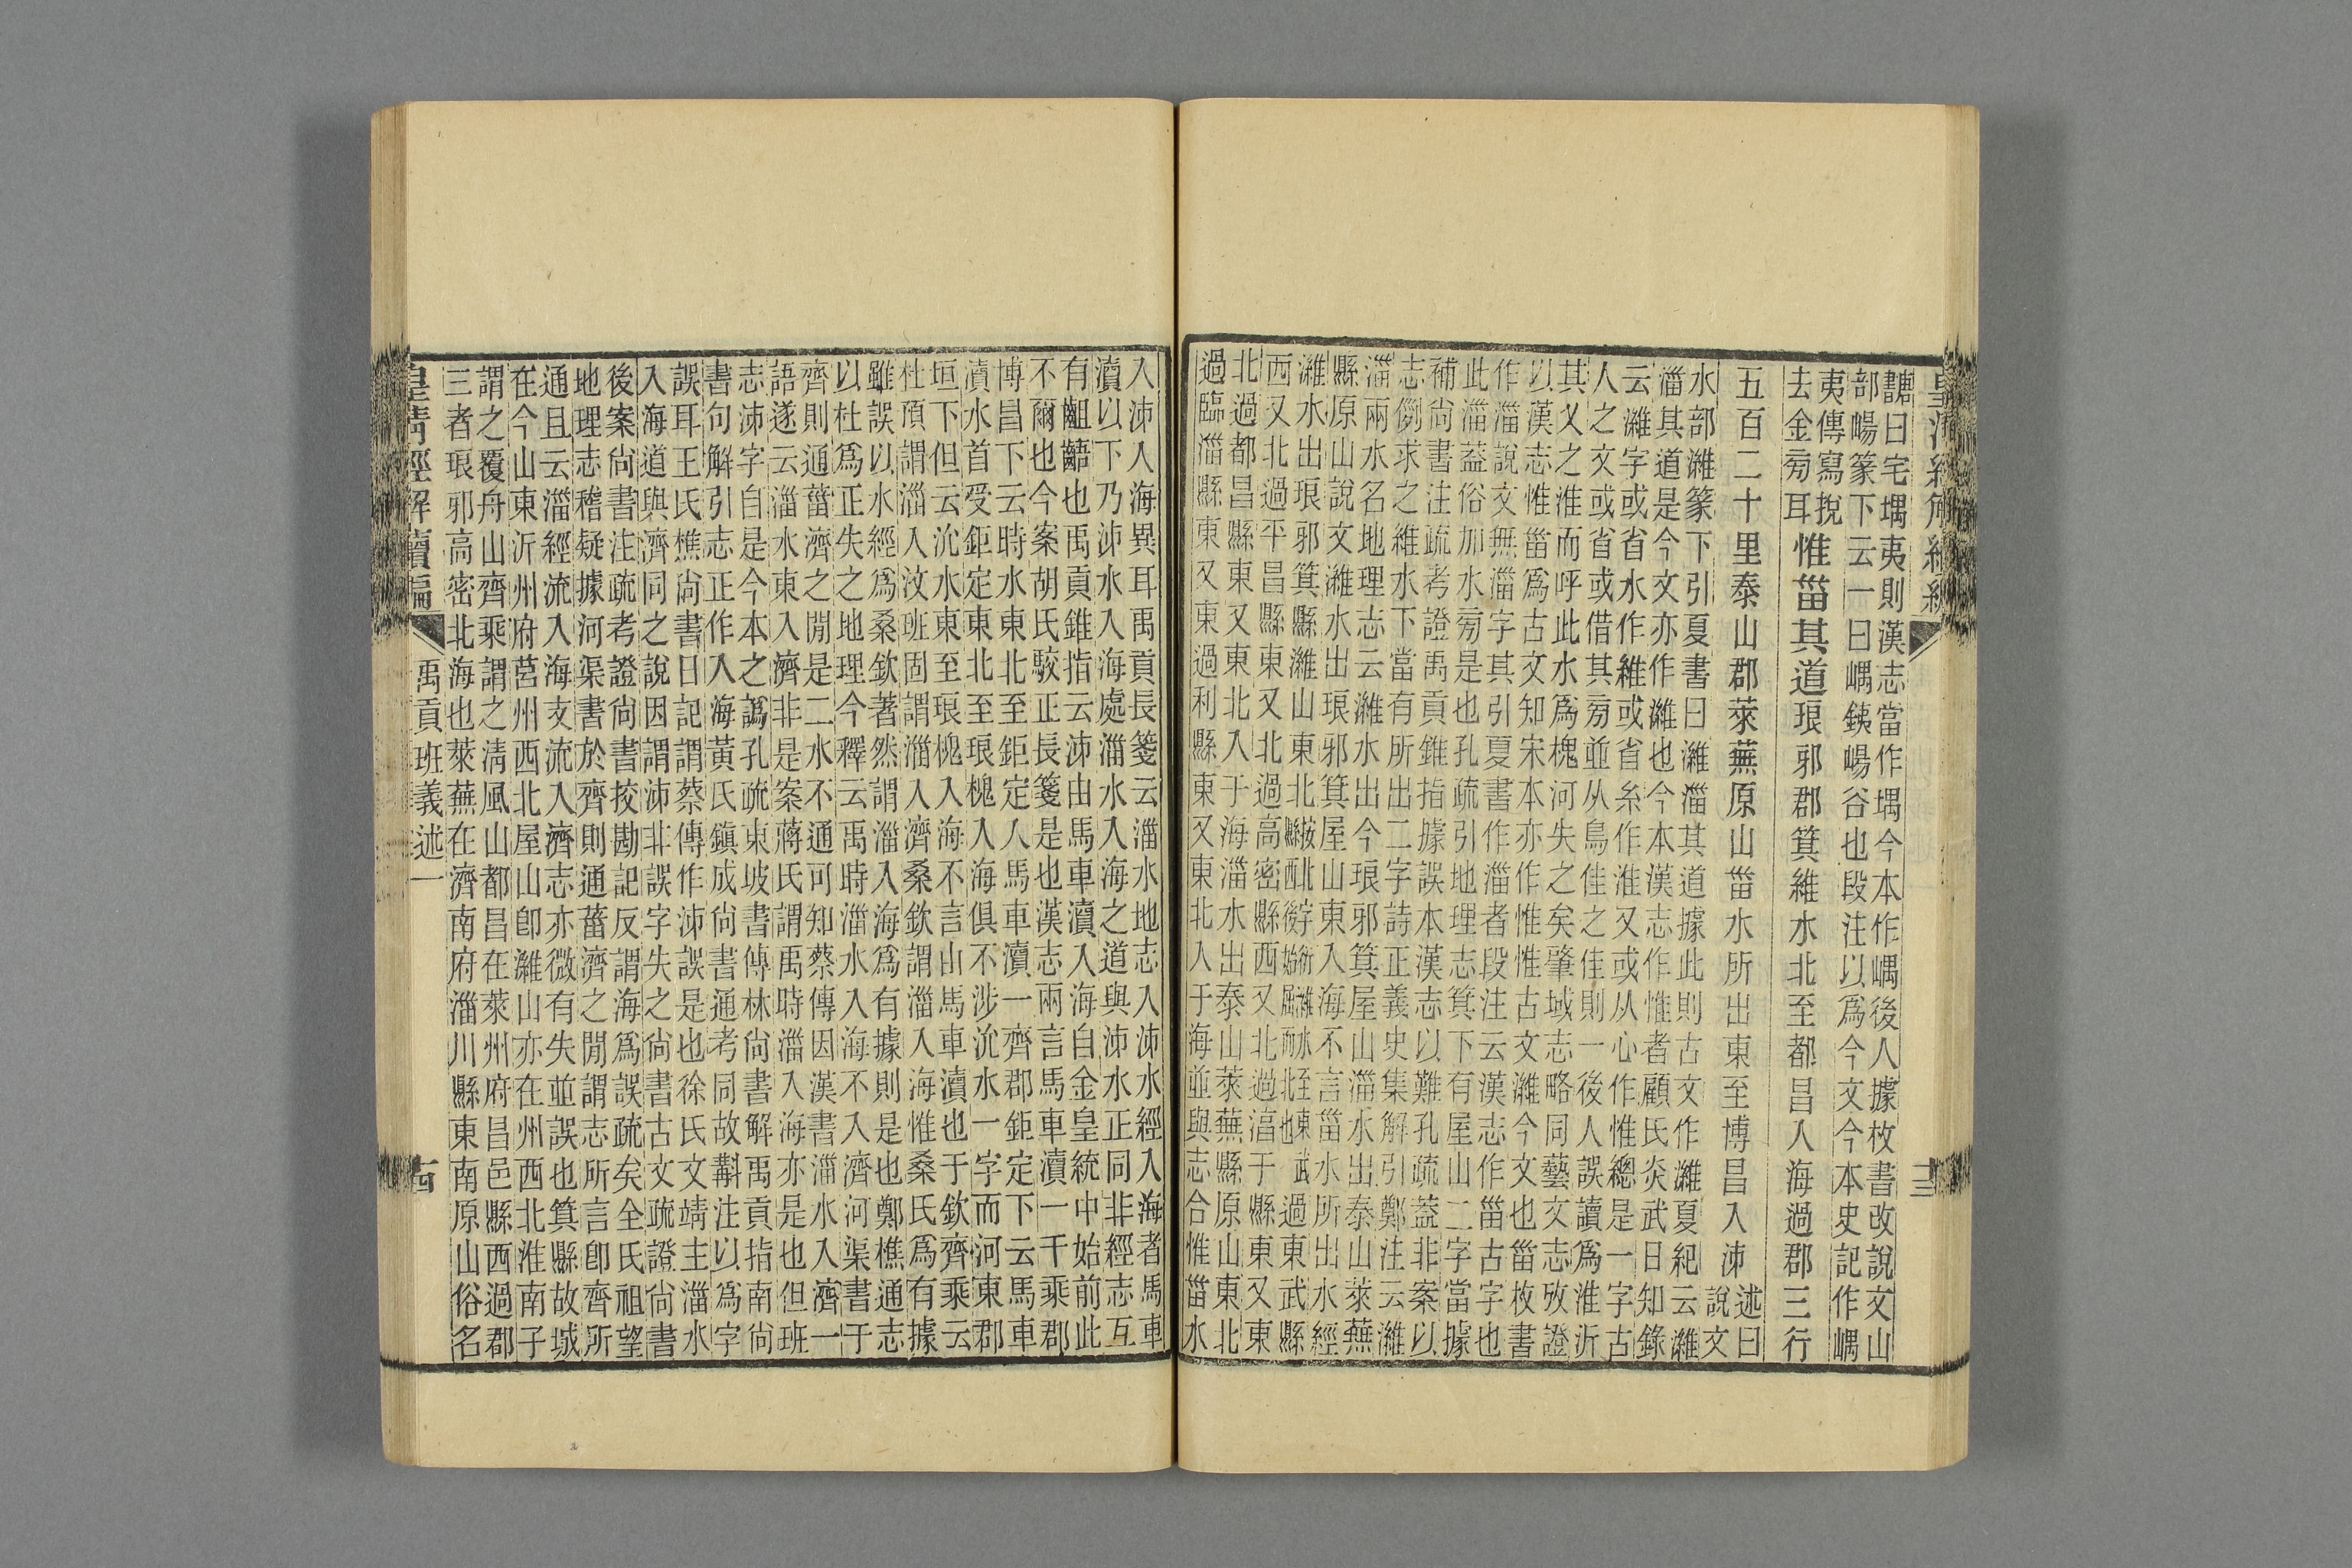 皇清經解續編
十三
讎曰宅堣夷則漢志當作堣今本作嵎後人據枚書改說文山
部崵篆下云一曰嵎銕崵谷也段注以爲今文今本史記作嵎
夷傳寫捝
去金旁耳惟甾其道琅邪郡箕維水北至都昌入海過郡三行
五百二十里泰山郡萊蕪原山甾水所出東至博昌入泲述曰
說文
水部濰篆下引夏書曰濰淄其道據此則古文作濰夏紀云濰
淄其道是今文亦作濰也今本漢志作惟者顧氏炎武日知錄
云濰字或省水作維或省糸作淮又或从心作惟總是一字古
人之文或省或借其旁並从鳥隹之隹則一後人誤讀爲淮沂
其乂之淮而呼此水爲槐河失之矣肇域志略同藝文志攷證
以漢志惟甾爲古文知宋本亦作惟惟古文濰今文也甾枚書
作淄說文無淄字其引夏書作淄者段注云漢志作甾古字也
此淄蓋俗加水旁是也孔疏引地理志箕下有屋山二字當據
補尚書注疏考證禹貢錐指據誤本漢志以難孔疏蓋非案以
志例求之維水下當有所出二字詩正義史集解引鄭注云濰
淄兩水名地理志云濰水出今琅邪箕屋山淄水出泰山萊蕪
縣原山說文濰水出琅邪箕屋山東入海不言甾水所出水經
濰水出琅邪箕縣濰山東北過東武縣
西又北過平昌縣東又北過高密縣西又北過淳于縣東又東
北過都昌縣東又東北入于海淄水出泰山萊蕪縣原山東北
過臨淄縣東又東過利縣東又東北入于海並與志合惟甾水
入泲入海異耳禹貢長箋云淄水地志入泲水經入海者馬車
瀆以下乃泲水入海處淄水入海之道與泲水正同非經志互
有齟齬也禹貢錐指云泲由馬車瀆入海自金皇統中始前此
不爾也今案胡氏駮正長箋是也漢志兩言馬車瀆一千乘郡
博昌下云時水東北至鉅定入馬車瀆一齊郡鉅定下云馬車
瀆水首受鉅定東北至琅槐入海俱不涉沇水一字而河東郡
垣下但云沇水東至琅槐入海不言由馬車瀆也于欽齊乘云
杜預謂淄入汶班固謂淄入濟桑欽謂淄入海惟桑氏爲有據
雖誤以水經爲桑欽著然謂淄入海爲有據則是也鄭樵通志
以杜爲正失之地理今釋云禹時淄水入海不入濟河渠書于
齊則通菑濟之閒是二水不通可知蔡傳因漢書淄水入濟一
語遂云淄水東入濟非是案蔣氏謂禹時淄入海亦是也但班
志泲字自是今本之譌孔疏東坡書傳林尚書解禹貢指南尚
書句解引志正作入海黃氏鎮成尚書通考同故斠注以爲字
誤耳王氏樵尚書日記謂蔡傳作泲誤是也徐氏文靖主淄水
入海道與濟同之說因謂泲非誤字失之尚書古文疏證尚書
後案尚書注疏考證尚書挍勘記反謂海爲誤疏矣全氏祖望
地理志稽疑據河渠書於齊則通菑濟之閒謂志所言卽齊所
通且云淄經流入海支流入濟志亦微有失並誤也箕縣故城
在今山東沂州府莒州西北屋山卽濰山亦在州西北淮南子
謂之覆舟山齊乘謂之淸風山都昌在萊州府昌邑縣西過郡
三者琅邪高密北海也萊蕪在濟南府淄川縣東南原山俗名
皇清經解續編
禹貢班義述一
十四